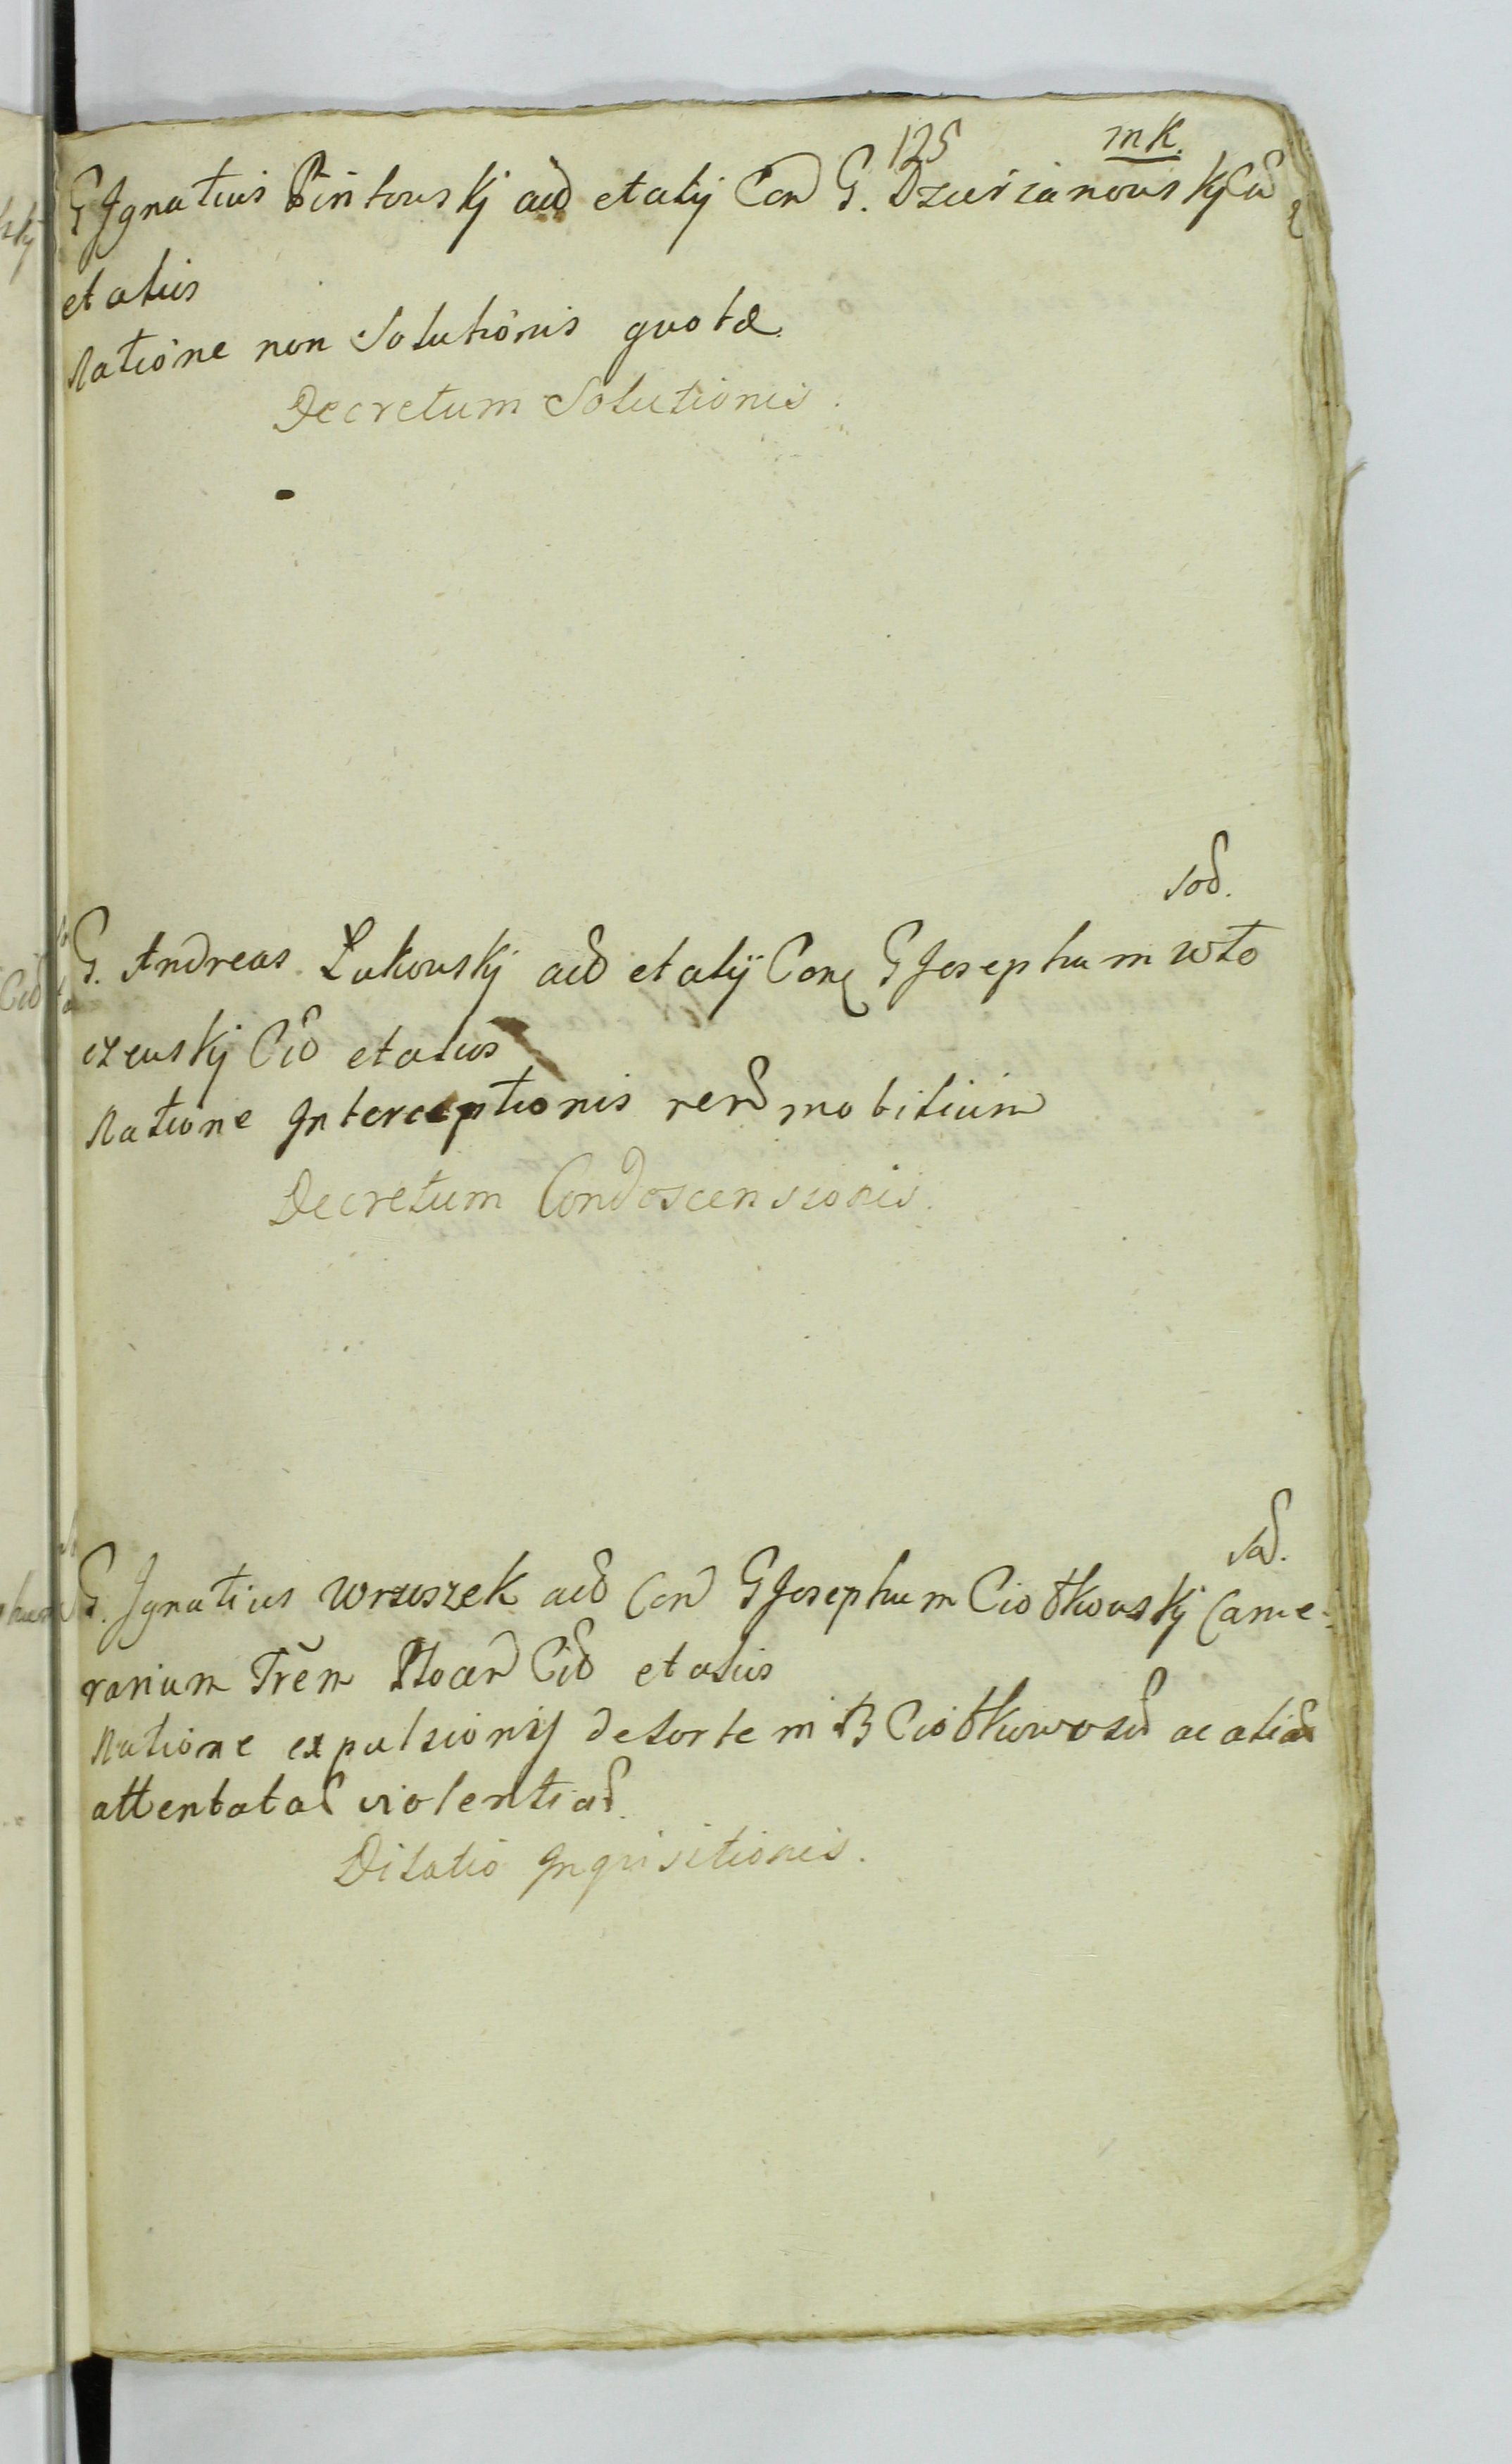 125 mk.
G Ignatius Pinkowskj aud et alij Con G. Dzierzanowskj Cid
et alios
Ratione non Solutionis quotæ
Decretum Solutionis.
Sod.
G. Andreas Łukowskj aud et alij Con G Josephum Wło
czewskj Cid et alios
Ratione Interceptionis rerum mobilium
Decretum Condescensionis.
Sod.
G. Ignatius Wrzoszek aud Con G Josephum Ciołkowskj Came-
rarium Trěm Ploceñ Cid et alios
Ratione expulsionis de sorte in B Ciołkowo ac alias
attentatas violentias
Dilatio Inquisitionis.